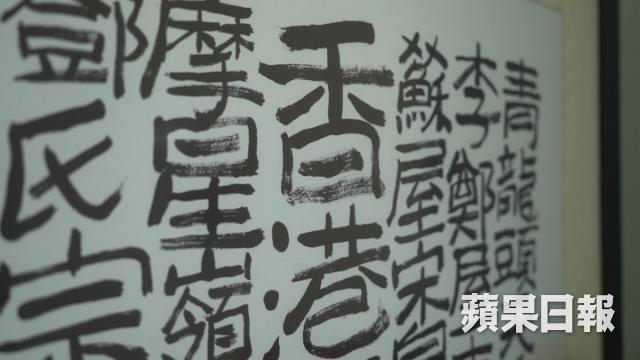 青龍頭
李鄭屋
蘇屋宋
香港
摩星嶺
鄧氏宗
蘋果日報